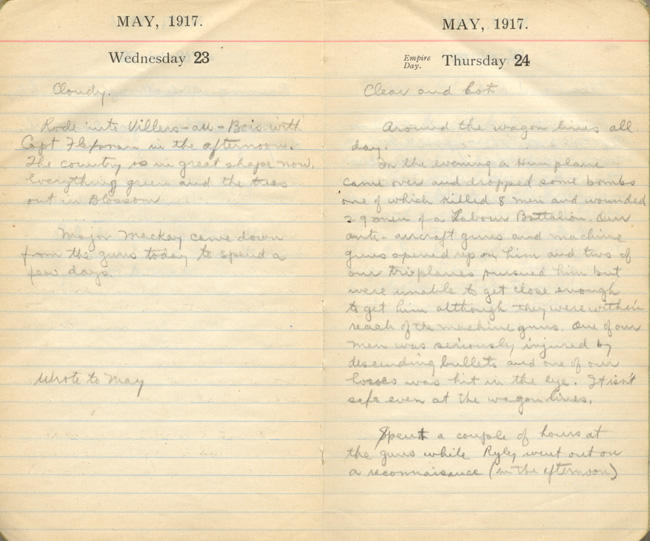 MAY, 1917.
Wednesday 23
Cloudy.
Rode into Villers-au-Bois with
Capt in the afternoon.
The country is in great shape now.
Everything green and the trees
out in Blossom
Major Mackay came down
from the guns today to spend a
few days.
Wrote to May
MAY, 1917.
Empire Day. Thursday 24
Clear and hot
Around the wagon lines all
day.
In the evening a Hun plane
came over and dropped some bombs
one of which killed 8 men and wounded
men of a Labour Battalion. Our
anti-aircraft guns and machine
guns opened up on him and two of
our triplanes pursued him but
were unable to get close enough
to get him although they were within
reach of the machine guns. One of our
men was seriously injured by
descending bullets and one of our
horses was hit in the eye. It isn't
safe even at the wagon lines.
Spent a couple of hours at
the guns while Ryly went out on
a reconnaisance (in the afternoon)